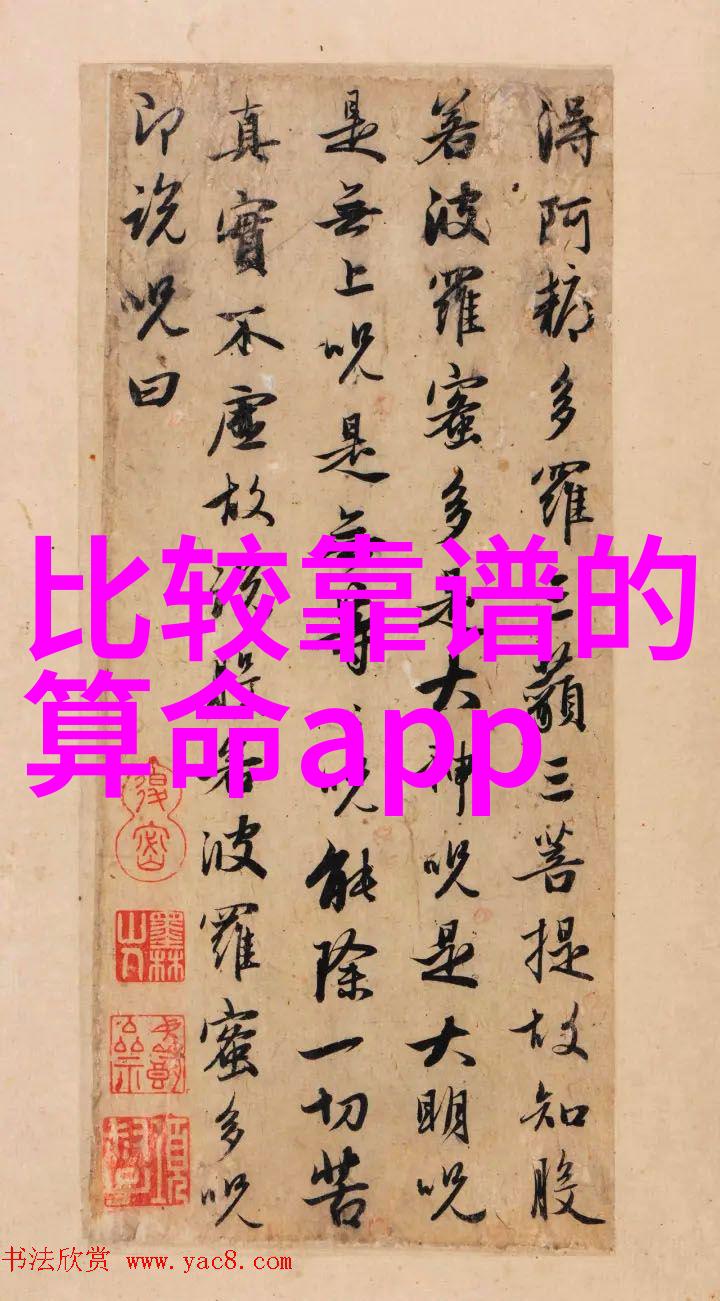 得阿耨多羅三藐三菩提故知般
若波羅蜜多是大神呪是大明呪
是無上呪是無等等呪能除一切苦
真實不虛故說般若波羅蜜多呪
即說呪曰
比较靠谱的
算命app
墨林
書法欣赏 www.yac8.com